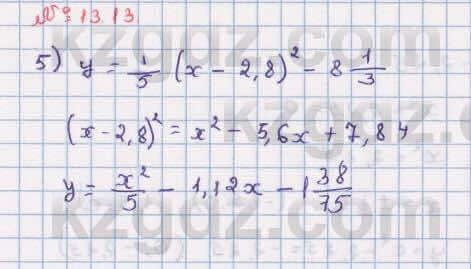 № 13.13.
5) y = 1/5 (x - 2,8)² - 8 1/3
(x - 2,8)² = x² - 5,6x + 7,84
y = x²/5 - 1,12x - 1 38/75